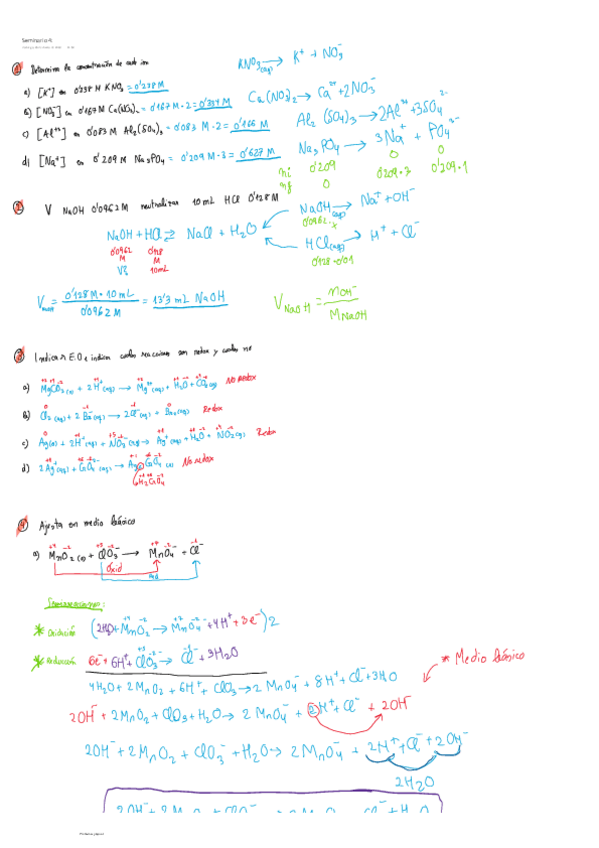 Seminario 4
① Determina la concentración de cada ion
KNO₃(aq) → K⁺ + NO₃⁻
a) [K⁺] en 0'238 M KNO₃ = 0'238 M
Ca(NO₃)₂ → Ca²⁺ + 2NO₃⁻
b) [NO₃⁻] en 0'167 M Ca(NO₃)₂ = 0'167 M · 2 = 0'334 M
Al₂(SO₄)₃ → 2Al³⁺ + 3SO₄²⁻
c) [Al³⁺] en 0'083 M Al₂(SO₄)₃ = 0'083 M · 2 = 0'166 M
Na₃PO₄ → 3Na⁺ + PO₄³⁻
d) [Na⁺] en 0'209 M Na₃PO₄ = 0'209 M · 3 = 0'627 M
ni 0'209 0 0
nf 0 0'209·3 0'209·1
② V NaOH 0'0962 M neutralizar 10 mL HCl 0'128 M
NaOH(aq) → Na⁺ + OH⁻
0'0962·x
NaOH + HCl ⇄ NaCl + H₂O
HCl(aq) → H⁺ + Cl⁻
0'128·0'01
0'0962 M 0'128 M
V? 10mL
= 0'128 M · 10 mL / 0'0962 M = 13'3 mL NaOH
V NaOH = nOH⁻ / M NaOH
③ Indica E.O e indica cuales reacciones son redox y cuales no
a) MgCO₃(s) + 2H⁺(aq) → Mg²⁺(aq) + H₂O + CO₂(g) No Redox
b) Cl₂(aq) + 2Br⁻(aq) → 2Cl⁻(aq) + Br₂(aq) Redox
c) Ag(s) + 2H⁺(aq) + NO₃⁻(aq) → Ag⁺(aq) + H₂O + NO₂(g) Redox
d) 2Ag⁺(aq) + CrO₄²⁻(aq) → Ag₂CrO₄(s) No redox
H₂CrO₄
④ Ajusta en medio básico
a) MnO₂(s) + ClO₃⁻ → MnO₄⁻ + Cl⁻
Oxid
Red
Semirreacciones:
* Oxidación (2H₂O + MnO₂ → MnO₄⁻ + 4H⁺ + 3e⁻) 2
* Reducción 6e⁻ + 6H⁺ + ClO₃⁻ → Cl⁻ + 3H₂O
* Medio básico
4H₂O + 2MnO₂ + 6H⁺ + ClO₃ → 2MnO₄⁻ + 8H⁺ + Cl⁻ + 3H₂O
2OH⁻ + 2MnO₂ + ClO₃ + H₂O → 2MnO₄⁻ + 2H⁺ + Cl⁻ + 2OH⁻
2OH⁻ + 2MnO₂ + ClO₃⁻ + H₂O → 2MnO₄⁻ + 2H⁺ + Cl⁻ + 2OH⁻
2H₂O